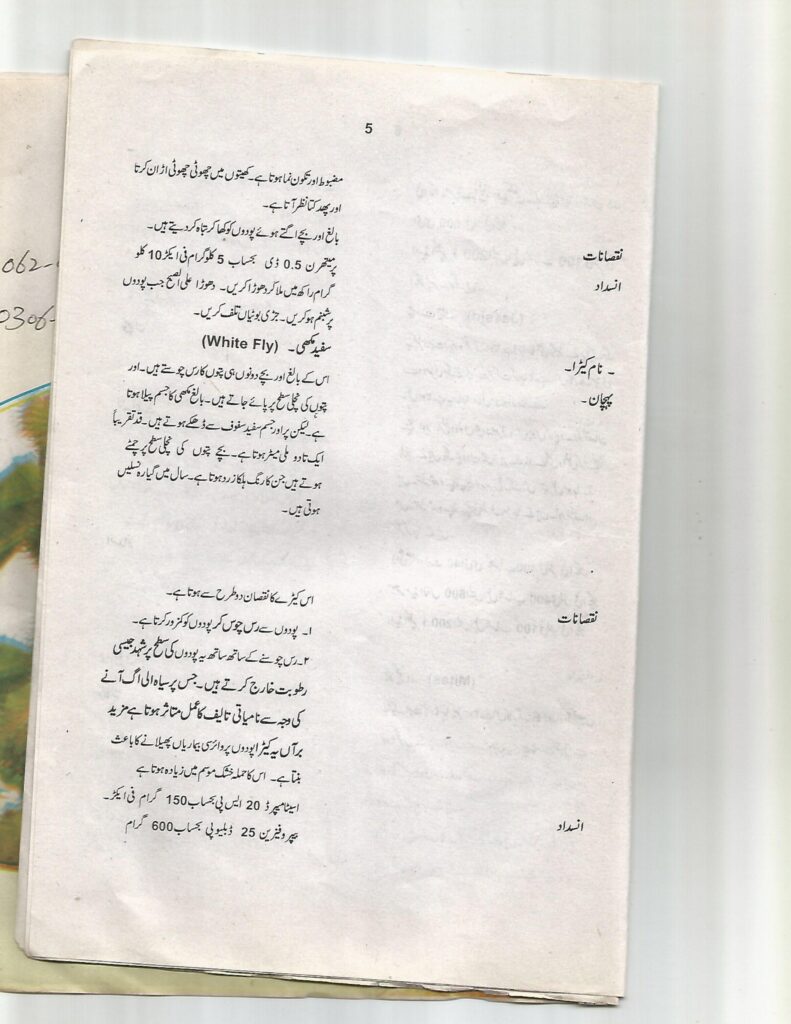 5
مضبوط اور تکون نما ہوتا ہے۔ کھیتوں میں چھوٹی چھوٹی اڑان کرتا
اور پھدکتا نظر آتا ہے۔
نقصانات بالغ اور بچے اگتے ہوئے پودوں کو کھا کر تباہ کر دیتے ہیں۔
انسداد پرمیتھرن 0.5 ڈی بحساب 5 کلوگرام فی ایکڑ 10 کلو
گرام راکھ میں ملا کر دھوڑا کریں۔ دھوڑا علی الصبح جب پودوں
پر شبنم ہو کریں۔ جڑی بوٹیاں تلف کریں۔
۔ نام کیڑا۔ سفید مکھی۔ (White Fly)
پہچان۔ اس کے بالغ اور بچے دونوں ہی پتوں کا رس چوستے ہیں۔ اور
پتوں کی نچلی سطح پر پائے جاتے ہیں۔ بالغ مکھی کا جسم پیلا ہوتا
ہے۔ لیکن پر اور جسم سفید سفوف سے ڈھکے ہوتے ہیں۔ قد تقریباً
ایک تا دو ملی میٹر ہوتا ہے۔ بچے پتوں کی نچلی سطح پر چمٹے
ہوتے ہیں جن کا رنگ ہلکا زرد ہوتا ہے۔ سال میں گیارہ نسلیں
ہوتی ہیں۔
نقصانات اس کیڑے کا نقصان دو طرح سے ہوتا ہے۔
۱۔ پودوں سے رس چوس کر پودوں کو کمزور کرتا ہے۔
۲۔ رس چوسنے کے ساتھ ساتھ یہ پودوں کی سطح پر شہد جیسی
رطوبت خارج کرتے ہیں۔ جس پر سیاہ الی اگ آنے
کی وجہ سے نامیاتی تالیف کا عمل متاثر ہوتا ہے مزید
برآں یہ کیڑا پودوں پر وائرسی بیماریاں پھیلانے کا باعث
بنتا ہے۔ اس کا حملہ خشک موسم میں زیادہ ہوتا ہے
انسداد اسیٹامپرڈ 20 ایس پی بحساب 150 گرام فی ایکڑ۔
بپروفیزین 25 ڈبلیو پی بحساب 600 گرام
062-
0306-